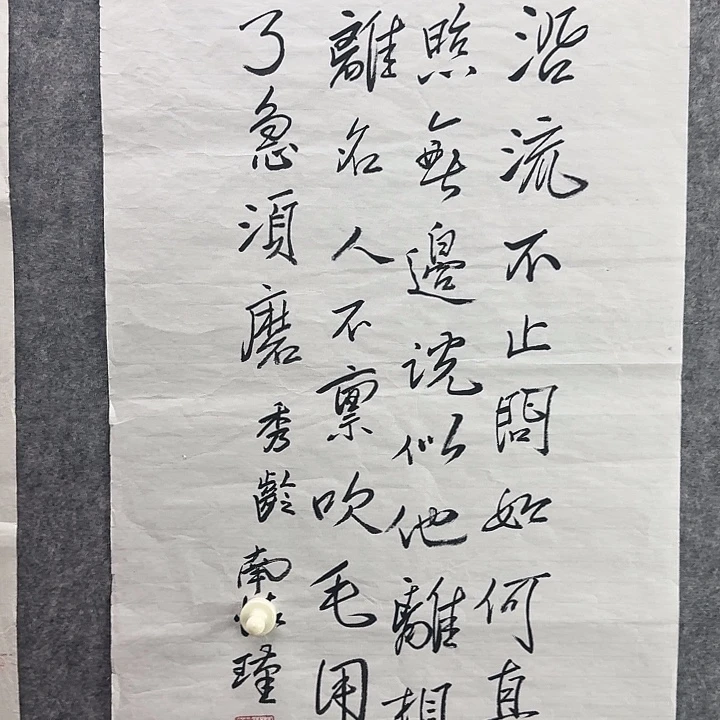 沿流不止問如何真
照無邊説似他離相
離名人不禀吹毛用
了急須磨 秀齡 南懷瑾